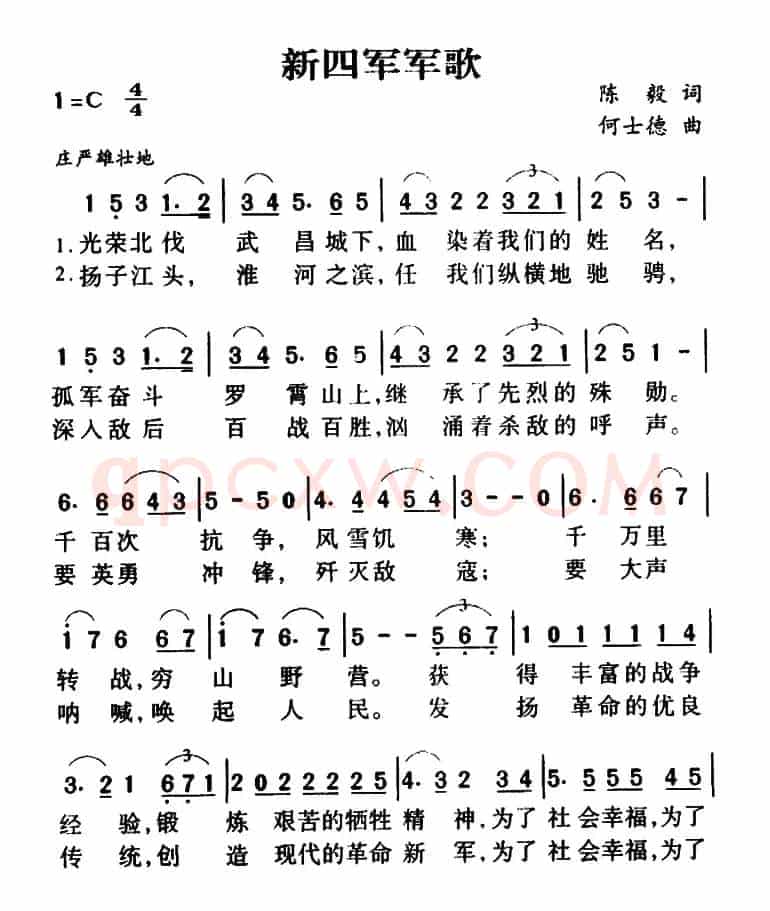 新四军军歌
1=C 4/4
陈 毅 词
何士德 曲
庄严雄壮地
1 5 3 1. 2 | 3 4 5. 6 5 | 4 3 2 2 3 2 1 | 2 5 3 - |
1.光荣北伐 武 昌城下,血 染着我们的 姓 名,
2.扬子江头, 淮 河之滨,任 我们纵横地 驰 骋,
1 5 3 1. 2 | 3 4 5. 6 5 | 4 3 2 2 3 2 1 | 2 5 1 - |
孤军奋斗 罗 霄山上,继 承了先烈的 殊 勋。
深入敌后 百 战百胜,汹 涌着杀敌的 呼 声。
qpcxw.COM
6. 6 6 4 3 | 5 - 5 0 | 4. 4 4 5 4 | 3 - - 0 | 6. 6 6 7 |
千 百次 抗 争, 风雪饥 寒; 千 万里
要 英勇 冲 锋, 歼灭敌 寇; 要 大声
1 7 6 6 7 | 1 7 6. 7 | 5 - - 5 6 7 | 1 0 1 1 1 1 4 |
转 战,穷 山 野 营。 获 得 丰富的战争
呐 喊,唤 起 人 民。 发 扬 革命的优良
3. 2 1 6 7 1 | 2 0 2 2 2 2 5 | 4. 3 2 3 4 | 5. 5 5 5 4 5 |
经 验,锻 炼 艰苦的牺牲 精 神,为了 社 会幸福,为了
传 统,创 造 现代的革命 新 军,为了 社 会幸福,为了